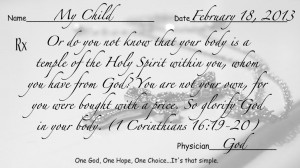 Name My Child Date February 18, 2013
Rx Or do you not know that your body is a
temple of the Holy Spirit within you, whom
you have from God? You are not your own, for
you were bought with a price. So glorify God
in your body. (1 Corinthians 16:19-20)
Physician God
One God, One Hope, One Choice...It's that simple.